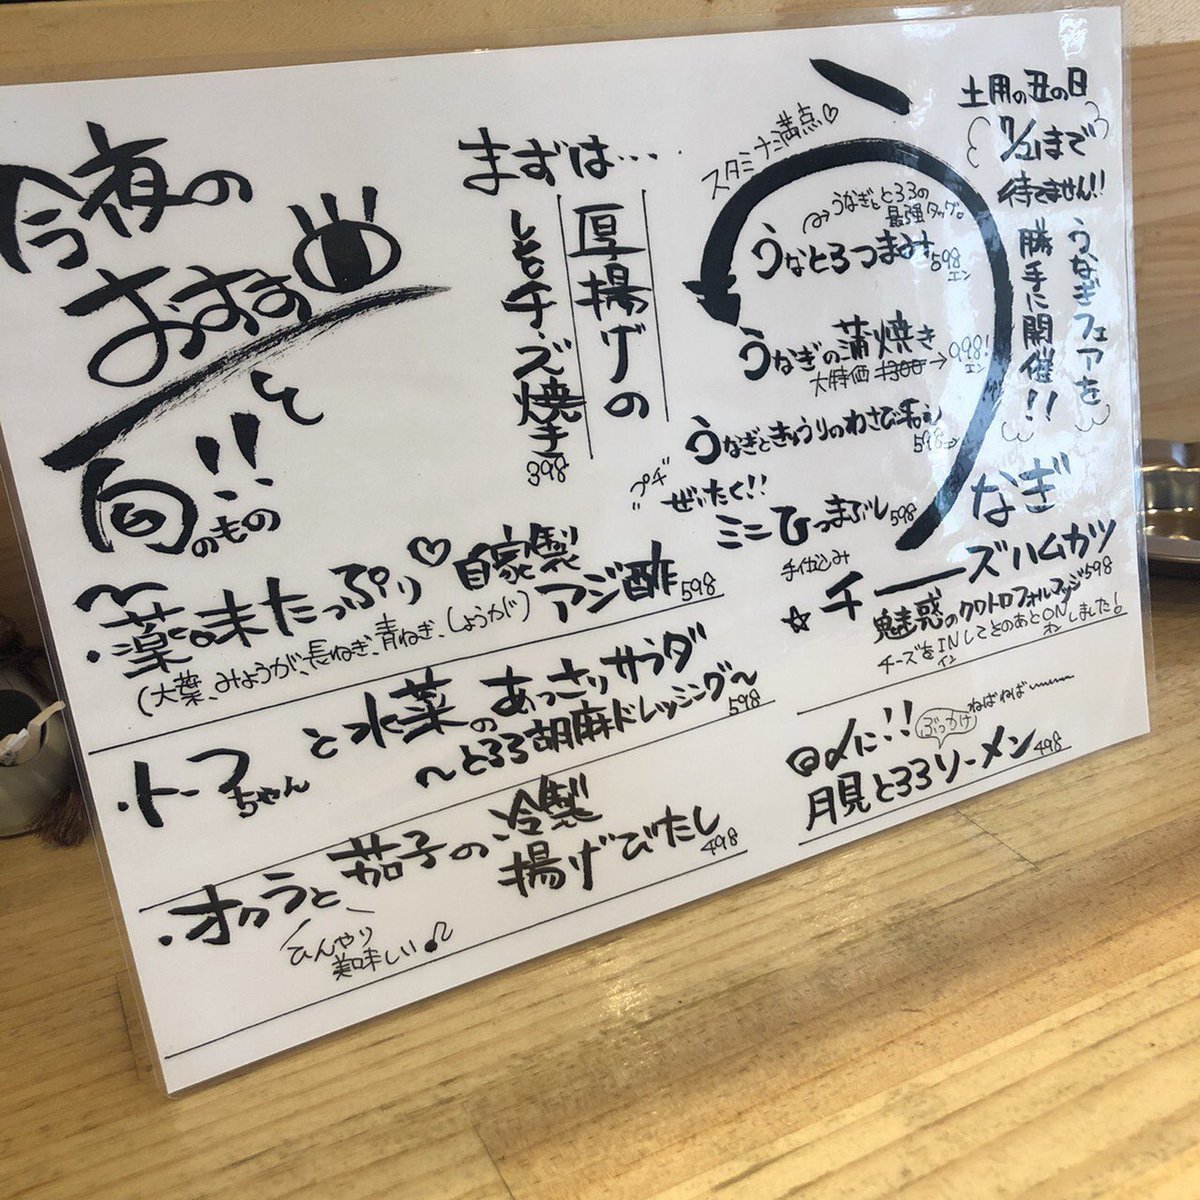 今夜の
おすすめ
と
旬!!のもの
まずは…
厚揚げの
チーズ焼き
398
・薬味たっぷり♡自家製
アジ酢 598
(大葉、みょうが、長ねぎ、青ねぎ、しょうが)
・トーフちゃんと水菜のあっさりサラダ
〜とろろ胡麻ドレッシング〜
598
・オクラと茄子の冷製
揚げびたし
498
ひんやり
美味しい♪
土用の丑の日
7/21まで
待てません!!
うなぎフェアを
勝手に開催!!
う
なぎ
スタミナ満点♡
うなぎととろろの
最強タッグ。
うなとろつまみ 598
エン
うなぎの蒲焼き
大特価 1300→998!
エン
うなぎときゅうりのわさび和え
598エン
プチ
ぜいたく!!
ミニひつまぶし 598
手仕込み
☆チーズハムカツ
魅惑のクワトロフォルマッジ 598
チーズをINしてそのあとONしました!
〆に!!
ぶっかけ
ねばねば
月見とろろソーメン 498